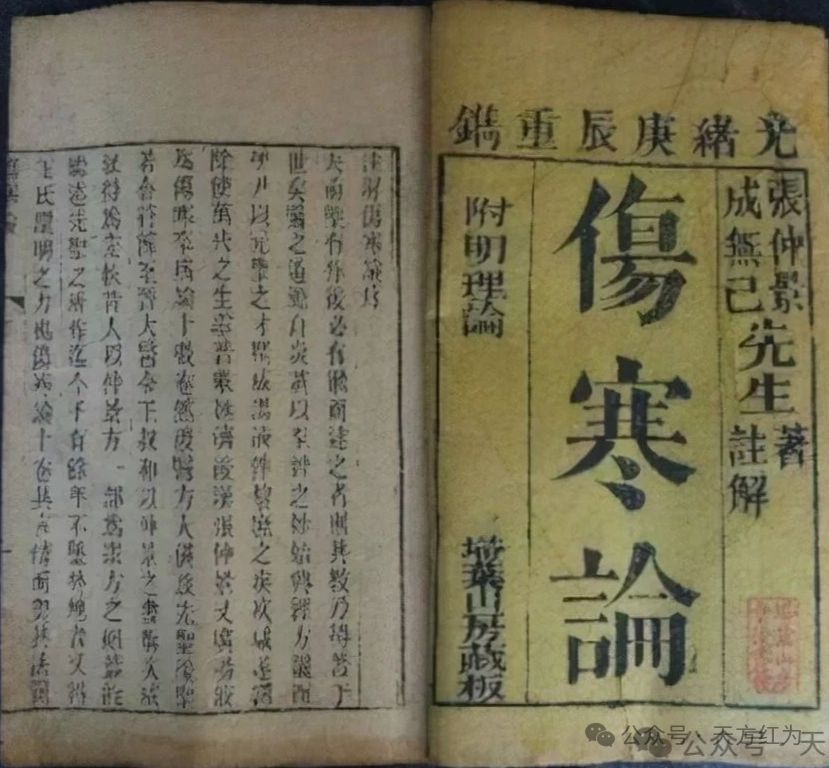 光緒庚辰重鐫
張仲景先生著
成無己註解
傷寒論
附明理論
埽葉山房藏板
註解傷寒論序
夫前聖有作後必有繼而述之者則其教乃得著于
世矣醫之道源自炎黃以至神之妙始興經方繼而
伊尹以元聖之才撰成湯液俾黎庶之疾疢咸遂蠲
除使萬代之生靈普蒙拯濟後漢張仲景又廣湯液
為傷寒卒病論十數卷然後醫方大備茲先聖後聖
若合符節至晉太醫令王叔和以仲景之書撰次成
敘得為完帙昔人以仲景方一部為眾方之祖蓋能
繼述先聖之所作迄今千有餘年不墜於地者又得
王氏闡明之力也傷寒論十卷其言精而奧其法簡
公众号·天方红为
公众号·天